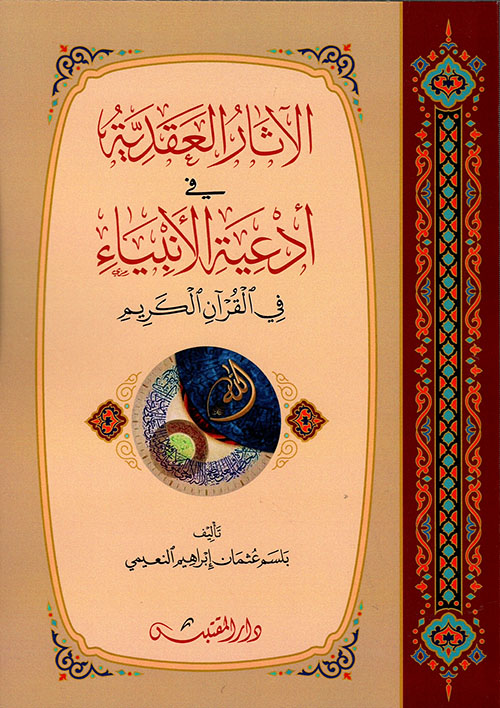 الآثَارُ العَقَدِيَّةُ
في
أَدْعِيَةِ الأَنْبِيَاءِ
فِي الْقُرْآنِ الْكَرِيمِ
الله
تَألِيْف
بلسم عثمان إبراهيم النعيمي
دار المقتبس